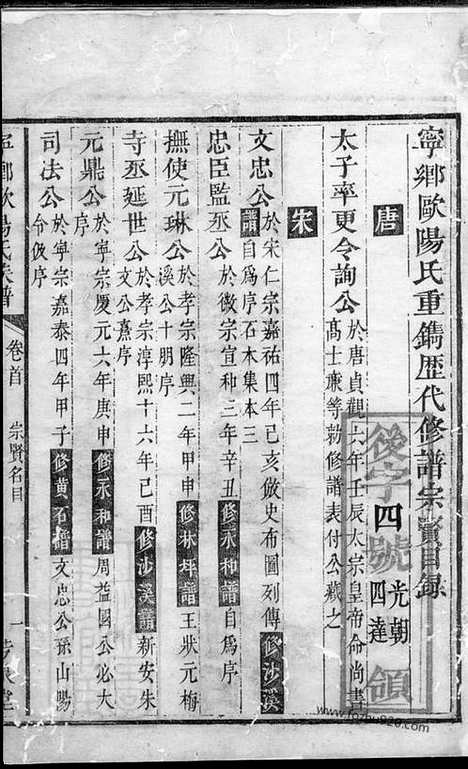 寧鄉歐陽氏重鐫歷代修譜宗賢目錄
後字四號領
光朝
四達
唐
太子率更令詢公 於唐貞觀六年壬辰太宗皇帝命尚書
高士廉等勅修譜表付公藏之
宋
文忠公 於宋仁宗嘉祐四年己亥倣史布圖列傳 修沙溪
譜 自為序石本集本三
忠臣監丞公 於徽宗宣和三年辛丑 修永和譜 自為序
撫使元琳公 於孝宗隆興二年甲申 修林坪譜 王狀元梅
溪公十朋序
寺丞延世公 於孝宗淳熙十六年己酉 修沙溪譜 新安朱
文公熹序
元鼎公 於寧宗慶元六年庚申 修永和譜 周益國公必大序
司法公 於寧宗嘉泰四年甲子 修黃石譜 文忠公孫山陽
令伋序
寧鄉歐陽氏族譜
卷首
宗賢名目
一
www.fozhu920.com